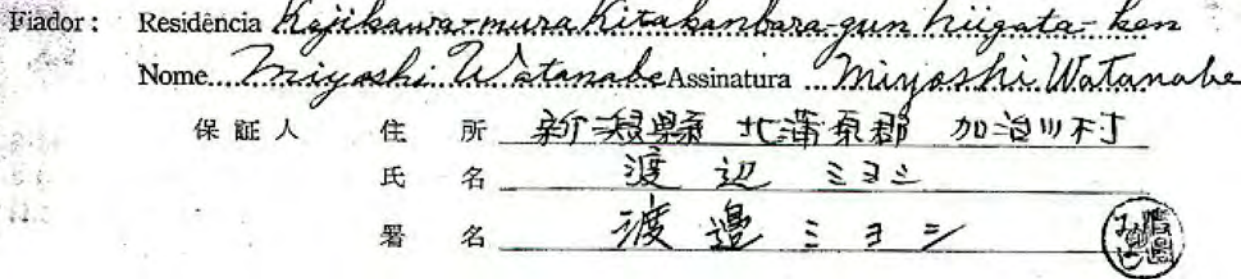 Fiador: Residência Kajikawa-mura Kitakanbara-gun Niigata-ken
Nome Miyoshi Watanabe Assinatura Miyoshi Watanabe
保証人 住所 新潟縣 北蒲原郡 加治川村
氏名 渡辺 ミヨシ
署名 渡邉 ミヨシ